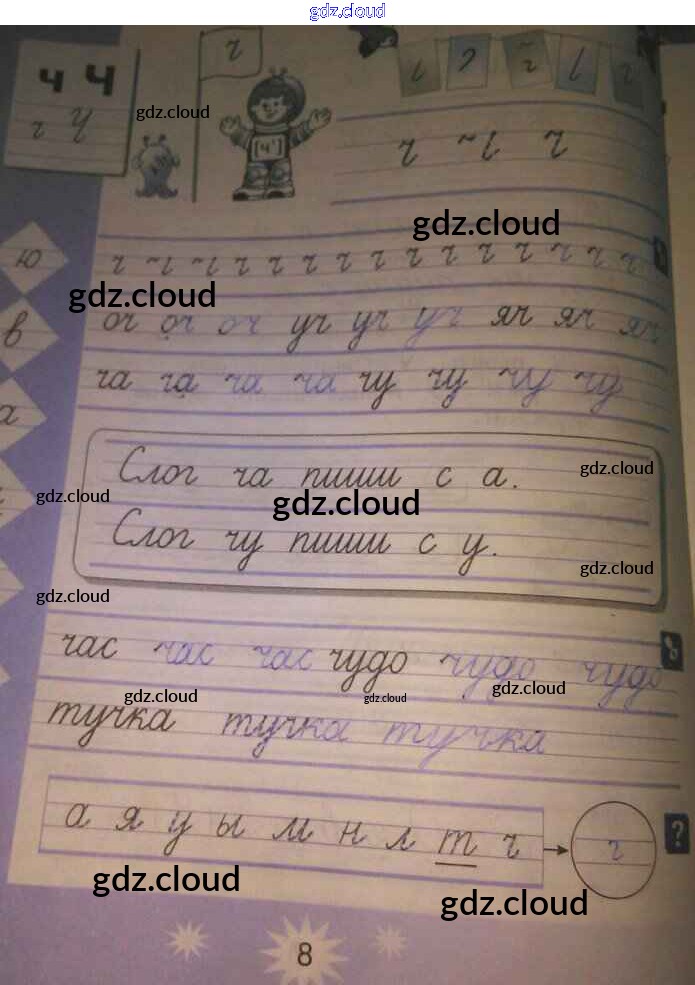 gdz.cloud
ч Ч
ч Ч
ч
gdz.cloud
[ч']
ч ч
gdz.cloud
ю ч ч ч ч ч ч ч ч ч ч ч ч
gdz.cloud
в оч оч оч уч уч уч яч яч яч
а ча ча ча ча чу чу чу чу
Слог ча пиши с а.
gdz.cloud
gdz.cloud gdz.cloud
Слог чу пиши с у.
gdz.cloud
gdz.cloud
час час час чудо чудо чудо
gdz.cloud gdz.cloud gdz.cloud
тучка тучка тучка
а я у ы м н л т ч ч ?
gdz.cloud
gdz.cloud
8